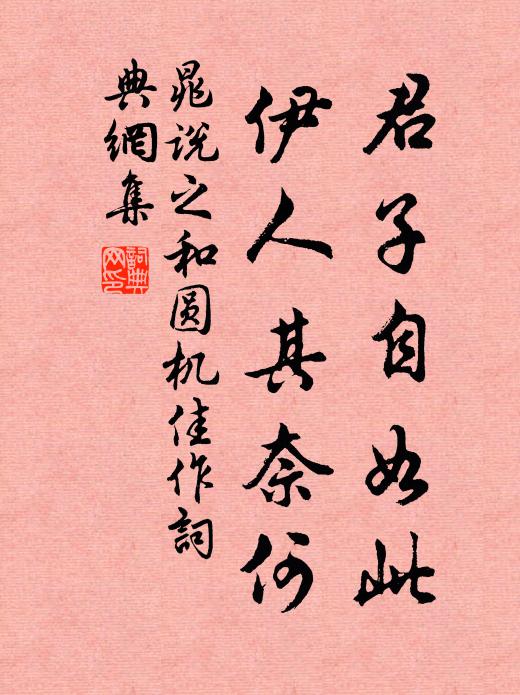 君子自如此
伊人其奈何
晁说之和圆机佳作詞
典網集
詞典
网印